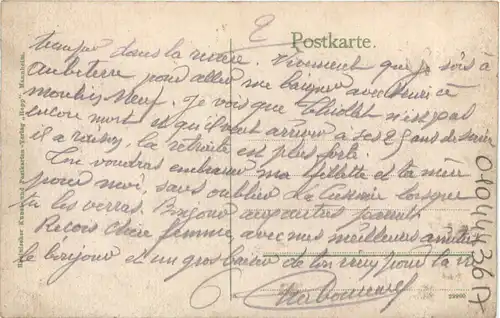 2
Postkarte.
dans la rivière. Vivement que je sois à
Aubeterre pour aller me baigner avec Henri à
moulin neuf. Je vois que n'est pas
encore mort et qu'il veut arriver à ses 25 ans de service
il a raison, la retraite est plus forte.
Tu voudras embrasser ma fillette et ta mère
pour moi, sans oublier la lorsque
tu les verras. Bonjour aux autres parents
Reçois chère femme avec mes meilleures amitiés
le bonjour et un gros baiser de ton vieux pour la vie
Rheinischer Kunst- und Postkarten-Verlag „Hepp", Mannheim.
010444367
29960